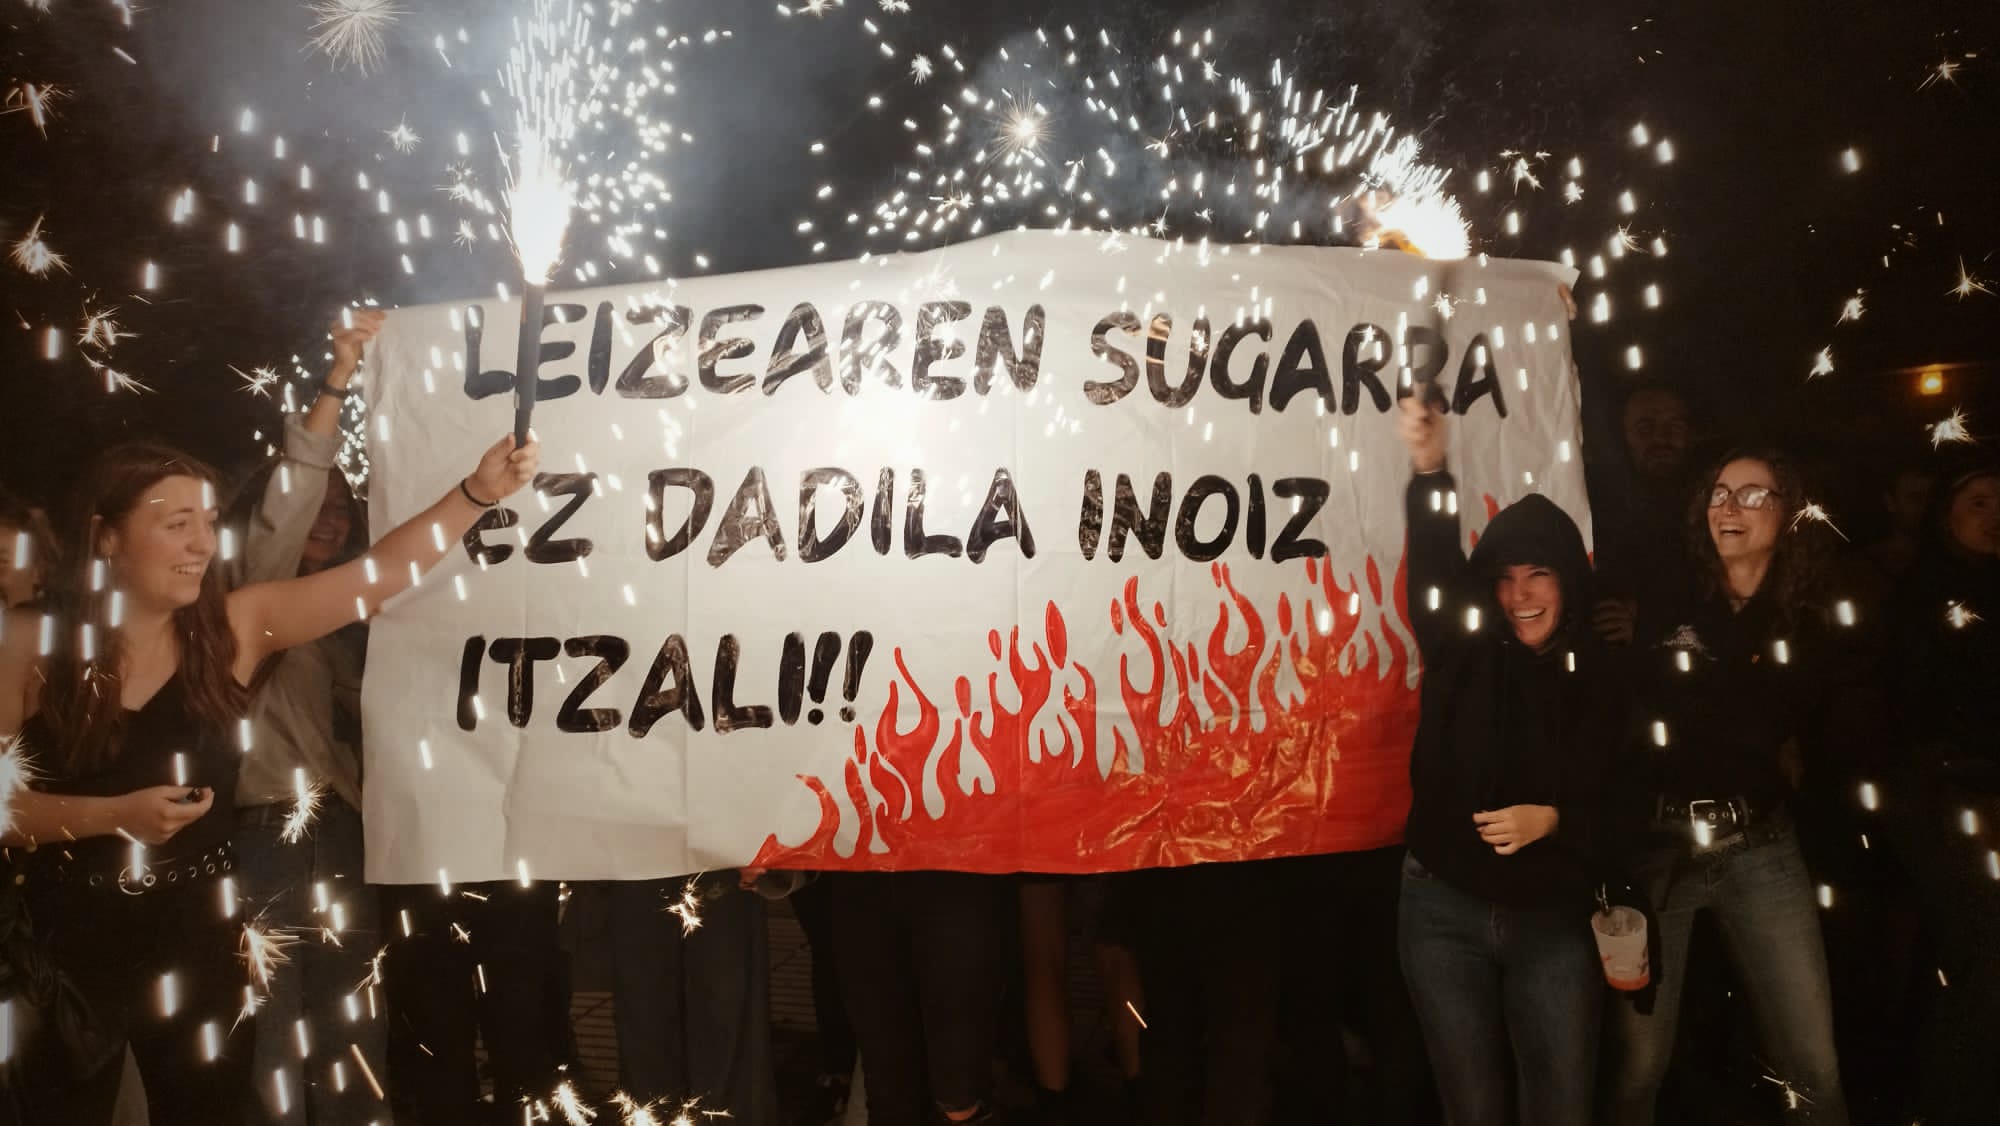 LEIZEAREN SUGARRA
EZ DADILA INOIZ
ITZALI!!!